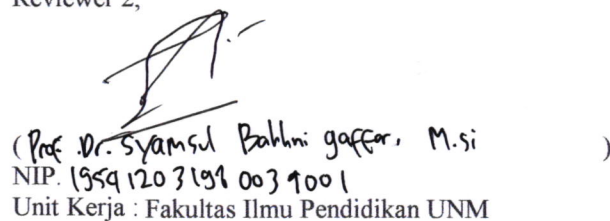 Reviewer 2,
(Prof. Dr. Syamsul Bakhri gaffar, M.si )
NIP. 19591203198003 1001
Unit Kerja : Fakultas Ilmu Pendidikan UNM